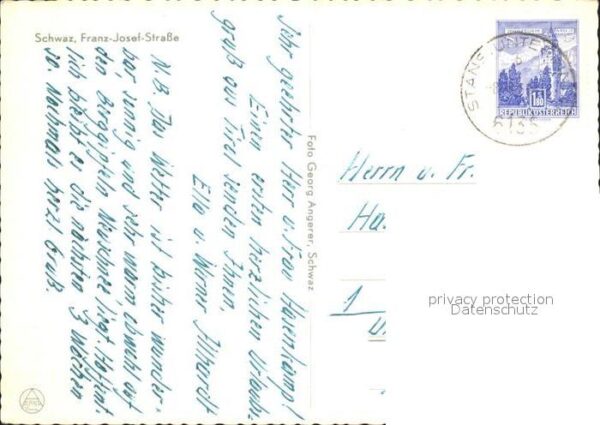 Schwaz, Franz-Josef-Straße
Sehr geehrter Herr u. Frau Hasenkamp!
Einen ersten herzlichen Urlaubs-
gruß aus Tirol senden Ihnen,
Ella u. Werner
N.B. Das Wetter ist bisher wunder-
bar, sonnig und sehr warm, obwohl auf
den Berggipfeln Neuschnee liegt. Hoffent-
lich bleibt es die nächsten 3 Wochen
so. Nochmals herzl. Gruß
Foto Georg Angerer, Schwaz
REPUBLIK ÖSTERREICH
STANS UNTERINN
6135
Herrn u. Fr.
Ha.
1
privacy protection
Datenschutz